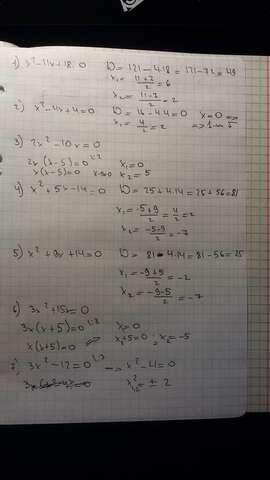 1) x²-11x+18=0 D=121-4·18=121-72=49
x₁=(11+7)/2=6
x₂=(11-7)/2=2
2) x²-4x+4=0 D=16-4·4=0
x₁=4/2=2
3) 2x²-10x=0
2x(x-5)=0 |:2 x₁=0
x(x-5)=0 x₂=5
4) x²+5x-14=0 D=25+4·14=25+56=81
x₁=(-5+9)/2=4/2=2
x₂=(-5-9)/2=-7
5) x²+9x+14=0 D=81-4·14=81-56=25
x₁=(-9+5)/2=-2
x₂=(-9-5)/2=-7
6) 3x²+15x=0
3x(x+5)=0 |:3 x₁=0
x(x+5)=0 => x+5=0; x₂=-5
7) 3x²-12=0 |:3 -> x²-4=0
x₁,₂=±2